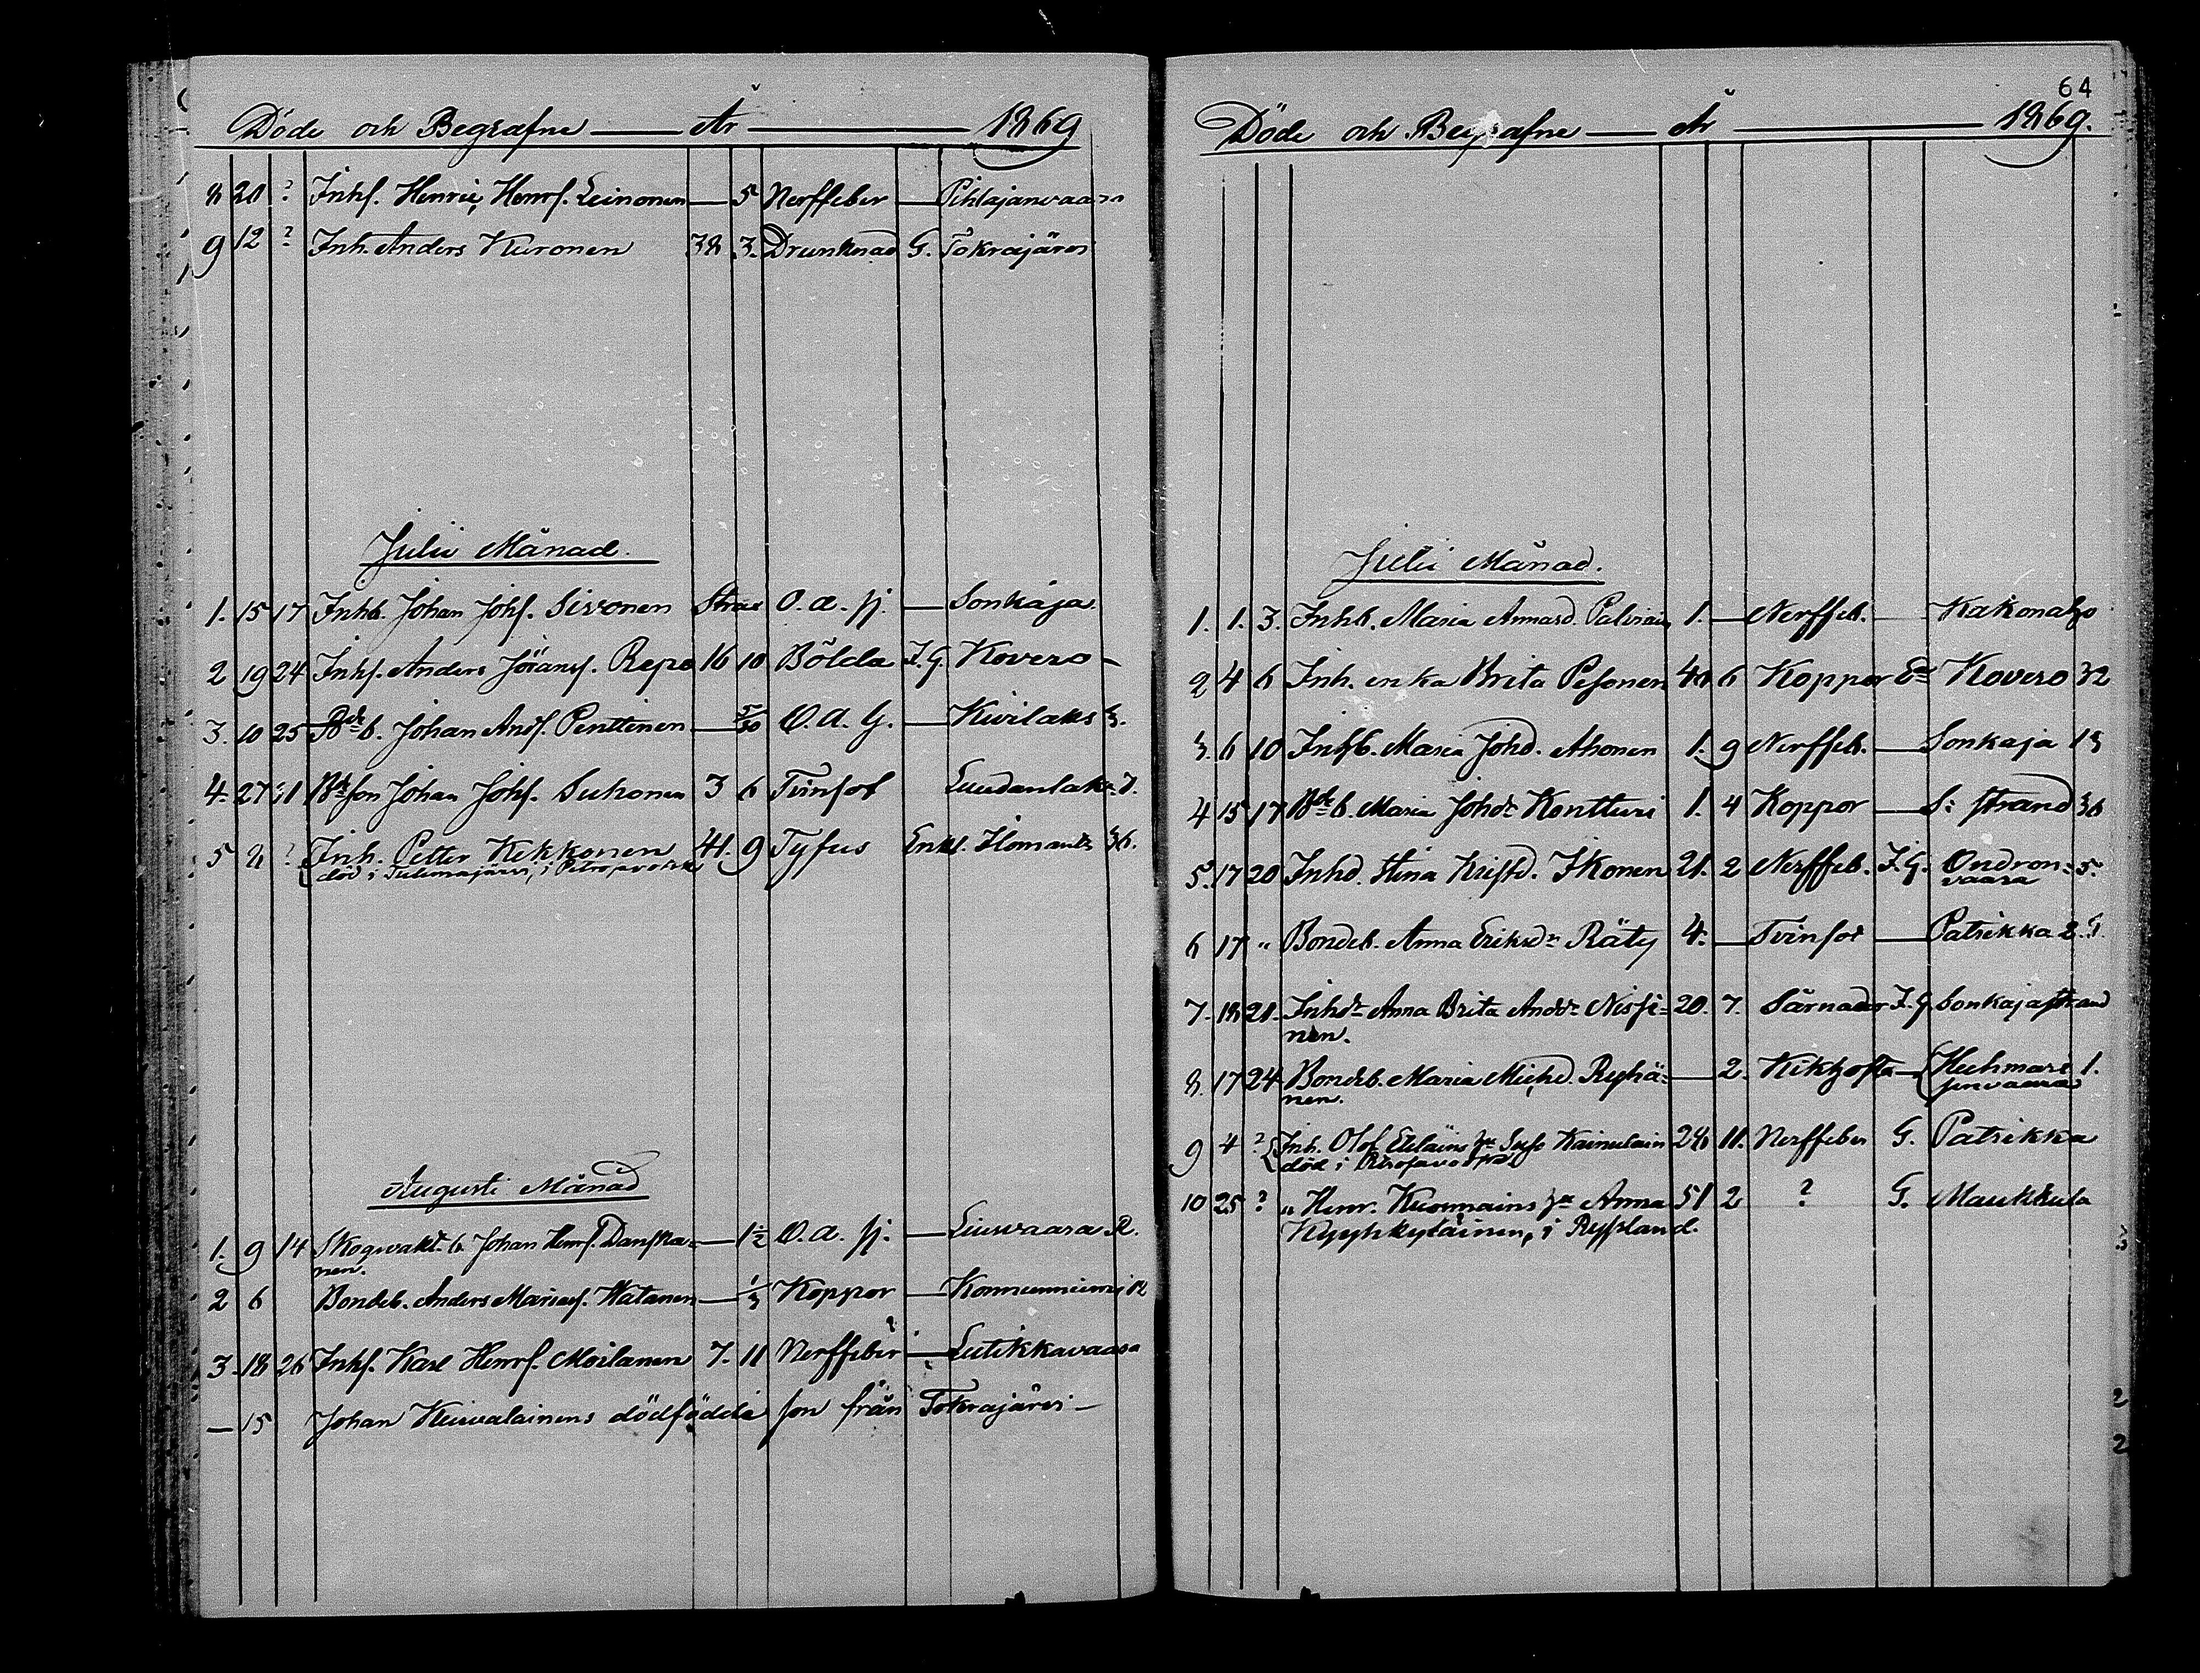 Döde och Begrafne År 1869
8 20 ? Inhs. Henric Henrs. Leinonen — 5 Nerffeber — Pihlajanvaara
9 12 ? Inh. Anders Kuronen 38 3. Drunknad G. Tokrajärvi
Julii Månad.
1. 15 17 Inhb. Johan Johs. Sivonen Strax O. a. sj. — Sonkaja
2 19 24 Inhs. Anders Jöranss. Repo 16 10 Bölda I.G. Kovero —
3. 10 25 Bde b. Johan Ands. Penttinen — 5/30 O. a. G. — Kivilaks 3.
4. 27 Bdeson Johan Johs. Suhonen 3 6 Tvinsot Luudanlaks 7.
5 8 ? Inh. Petter Kekkonen 41. 9 Tyfus Enkl. Ilomants 36.
död i Tulemajärvi, i Petrosavodsk
Augusti Månad
1. 9 14 Skogvakt. b. Johan Henrs. Danska=— 1½ O. a. sj. — Liusvaara R.
nen.
2 6 Bondeb. Anders Mariaes. Hatanen — 1/3 Koppor — Konnunniemi 12
3 18 26 Inhs. Karl Henrs. Moilanen 7. 11 Nerffeber — Lutikkavaara
— 15 Johan Kuivalainens dödfödda son från Tokrajärvi —
64
Döde och Begrafne År 1869.
Julii Månad.
1. 1. 3. Inhb. Maria Annasd. Palviain 1. — Nerffeb. — Kakonaho
2 4 6 Inh. enka Brita Pesonen 40 6 Koppor Ea Kovero 32
3. 6 10 Inhb. Maria Johd. Ahonen 1. 9 Nerffeb. — Sonkaja 13
4 15 17 Bde b. Maria Johdr Kontturi 1. 4 Koppor — S: strand 36
5. 17 20 Inhd. Stina Kristd. Ikonen 21. 2 Nerffeb. I.G. Ondron= 5.
vaara
6 17 " Bondeb. Anna Eriksdr Räty 4. — Tvinsot — Patrikka 2.
7. 18 21. Inhdr Anna Brita Anddr Nissi= 20. 7. Särnader I.G. Sonkajastrand
nen.
8. 17 24 Bondeb. Maria Michd. Ryhä= — 2. Kikhosta — Huhmari 1.
nen. senvaara
9 4 ? Inh. Olof Eteläins hu Sofo Kainulain 28 11. Nerffeber G. Patrikka
död i Petrosavodsk
10 25 ? " Henr. Kuonnains hu Anna 51 2 ? G. Maukkula
Kyyhkyläinen, i Ryssland.